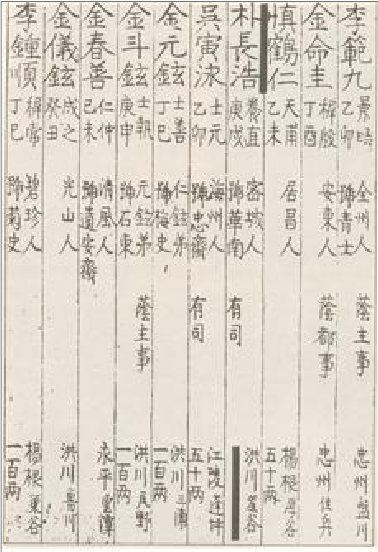 李範九 景時 乙卯 全州人 號青士 蔭主事 忠州 盤川
金命圭 穉殷 丁酉 安東人 蔭都事 忠州 佳兵
愼鶴仁 天甫 乙未 居昌人 楊根 厚谷 五十両
朴長浩 養直 庚戌 密城人 號華南 有司 洪川
吳寅泳 士元 乙卯 海州人 號忠齋 有司 江陵 五十両
金元鉉 士善 丁巳 仁鉉弟 號梅史 洪川 三傳 一百両
金斗鉉 士執 庚申 元鉉弟 號石東 蔭主事 洪川 瓦野 一百両
金春善 仁仲 己未 淸風人 號蓮安齋 永平
金儀鉉 成之 癸丑 光山人 洪川 魯川
李鍾順 穉常 丁巳 碧珍人 號菊史 楊根 谷 一百両